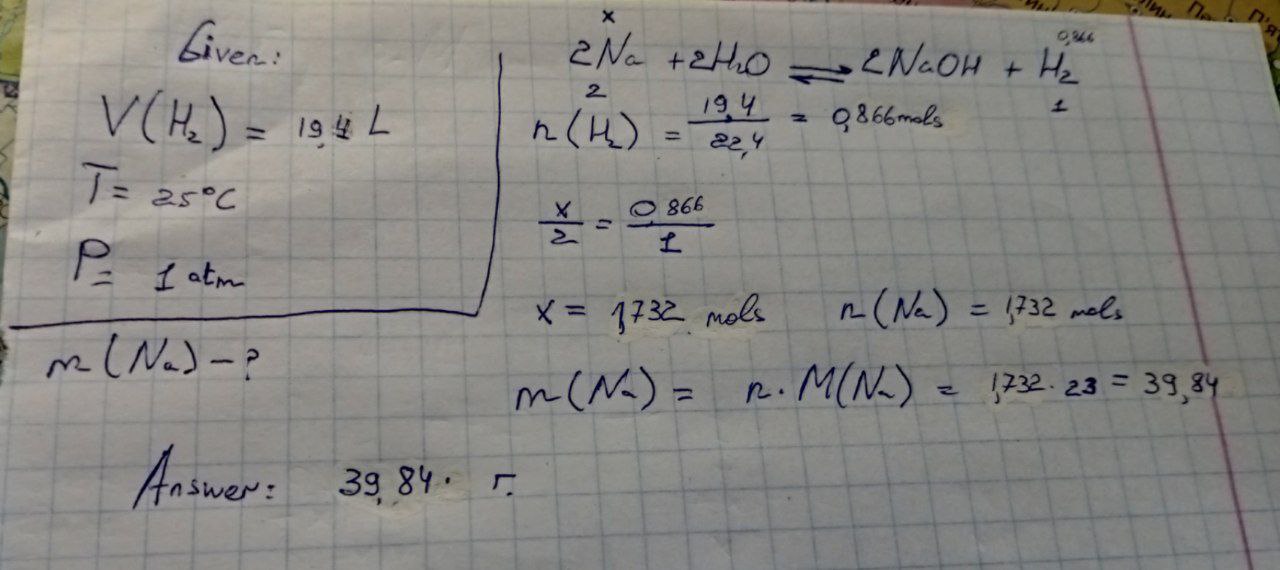 Given:
V(H₂) = 19,4 L
T = 25°C
P = 1 atm
m(Na) – ?
x 0,866
2Na + 2H₂O ⇌ 2NaOH + H₂
2 1
n(H₂) = 19,4 / 22,4 = 0,866 mols
x / 2 = 0,866 / 1
x = 1,732 mols n(Na) = 1,732 mols
m(Na) = n · M(Na) = 1,732 · 23 = 39,84
Answer: 39,84 г.